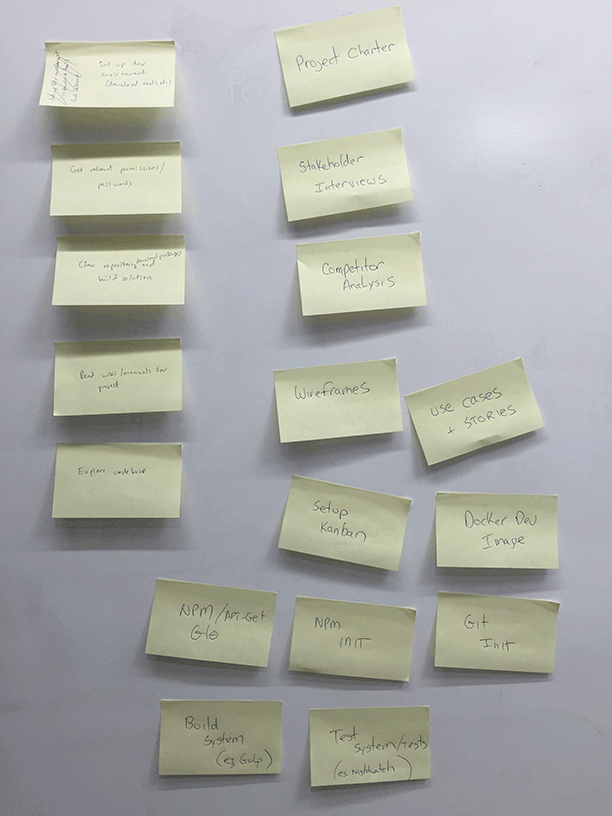 Set up dev
environment
(download tools, etc)
Get relevant permissions/
passwords
Clone repository and
download packages
build solution
Read wiki/manuals for
project
Explore codebase
Project Charter
Stakeholder
Interviews
Competitor
Analysis
Wireframes
Use Cases
+ STORIES
Setup
Kanban
Docker Dev
Image
NPM/APT-Get
NPM
INIT
Git
Init
Build
System
(eg Gulp)
Test
System/Tests
(eg Nightwatch)